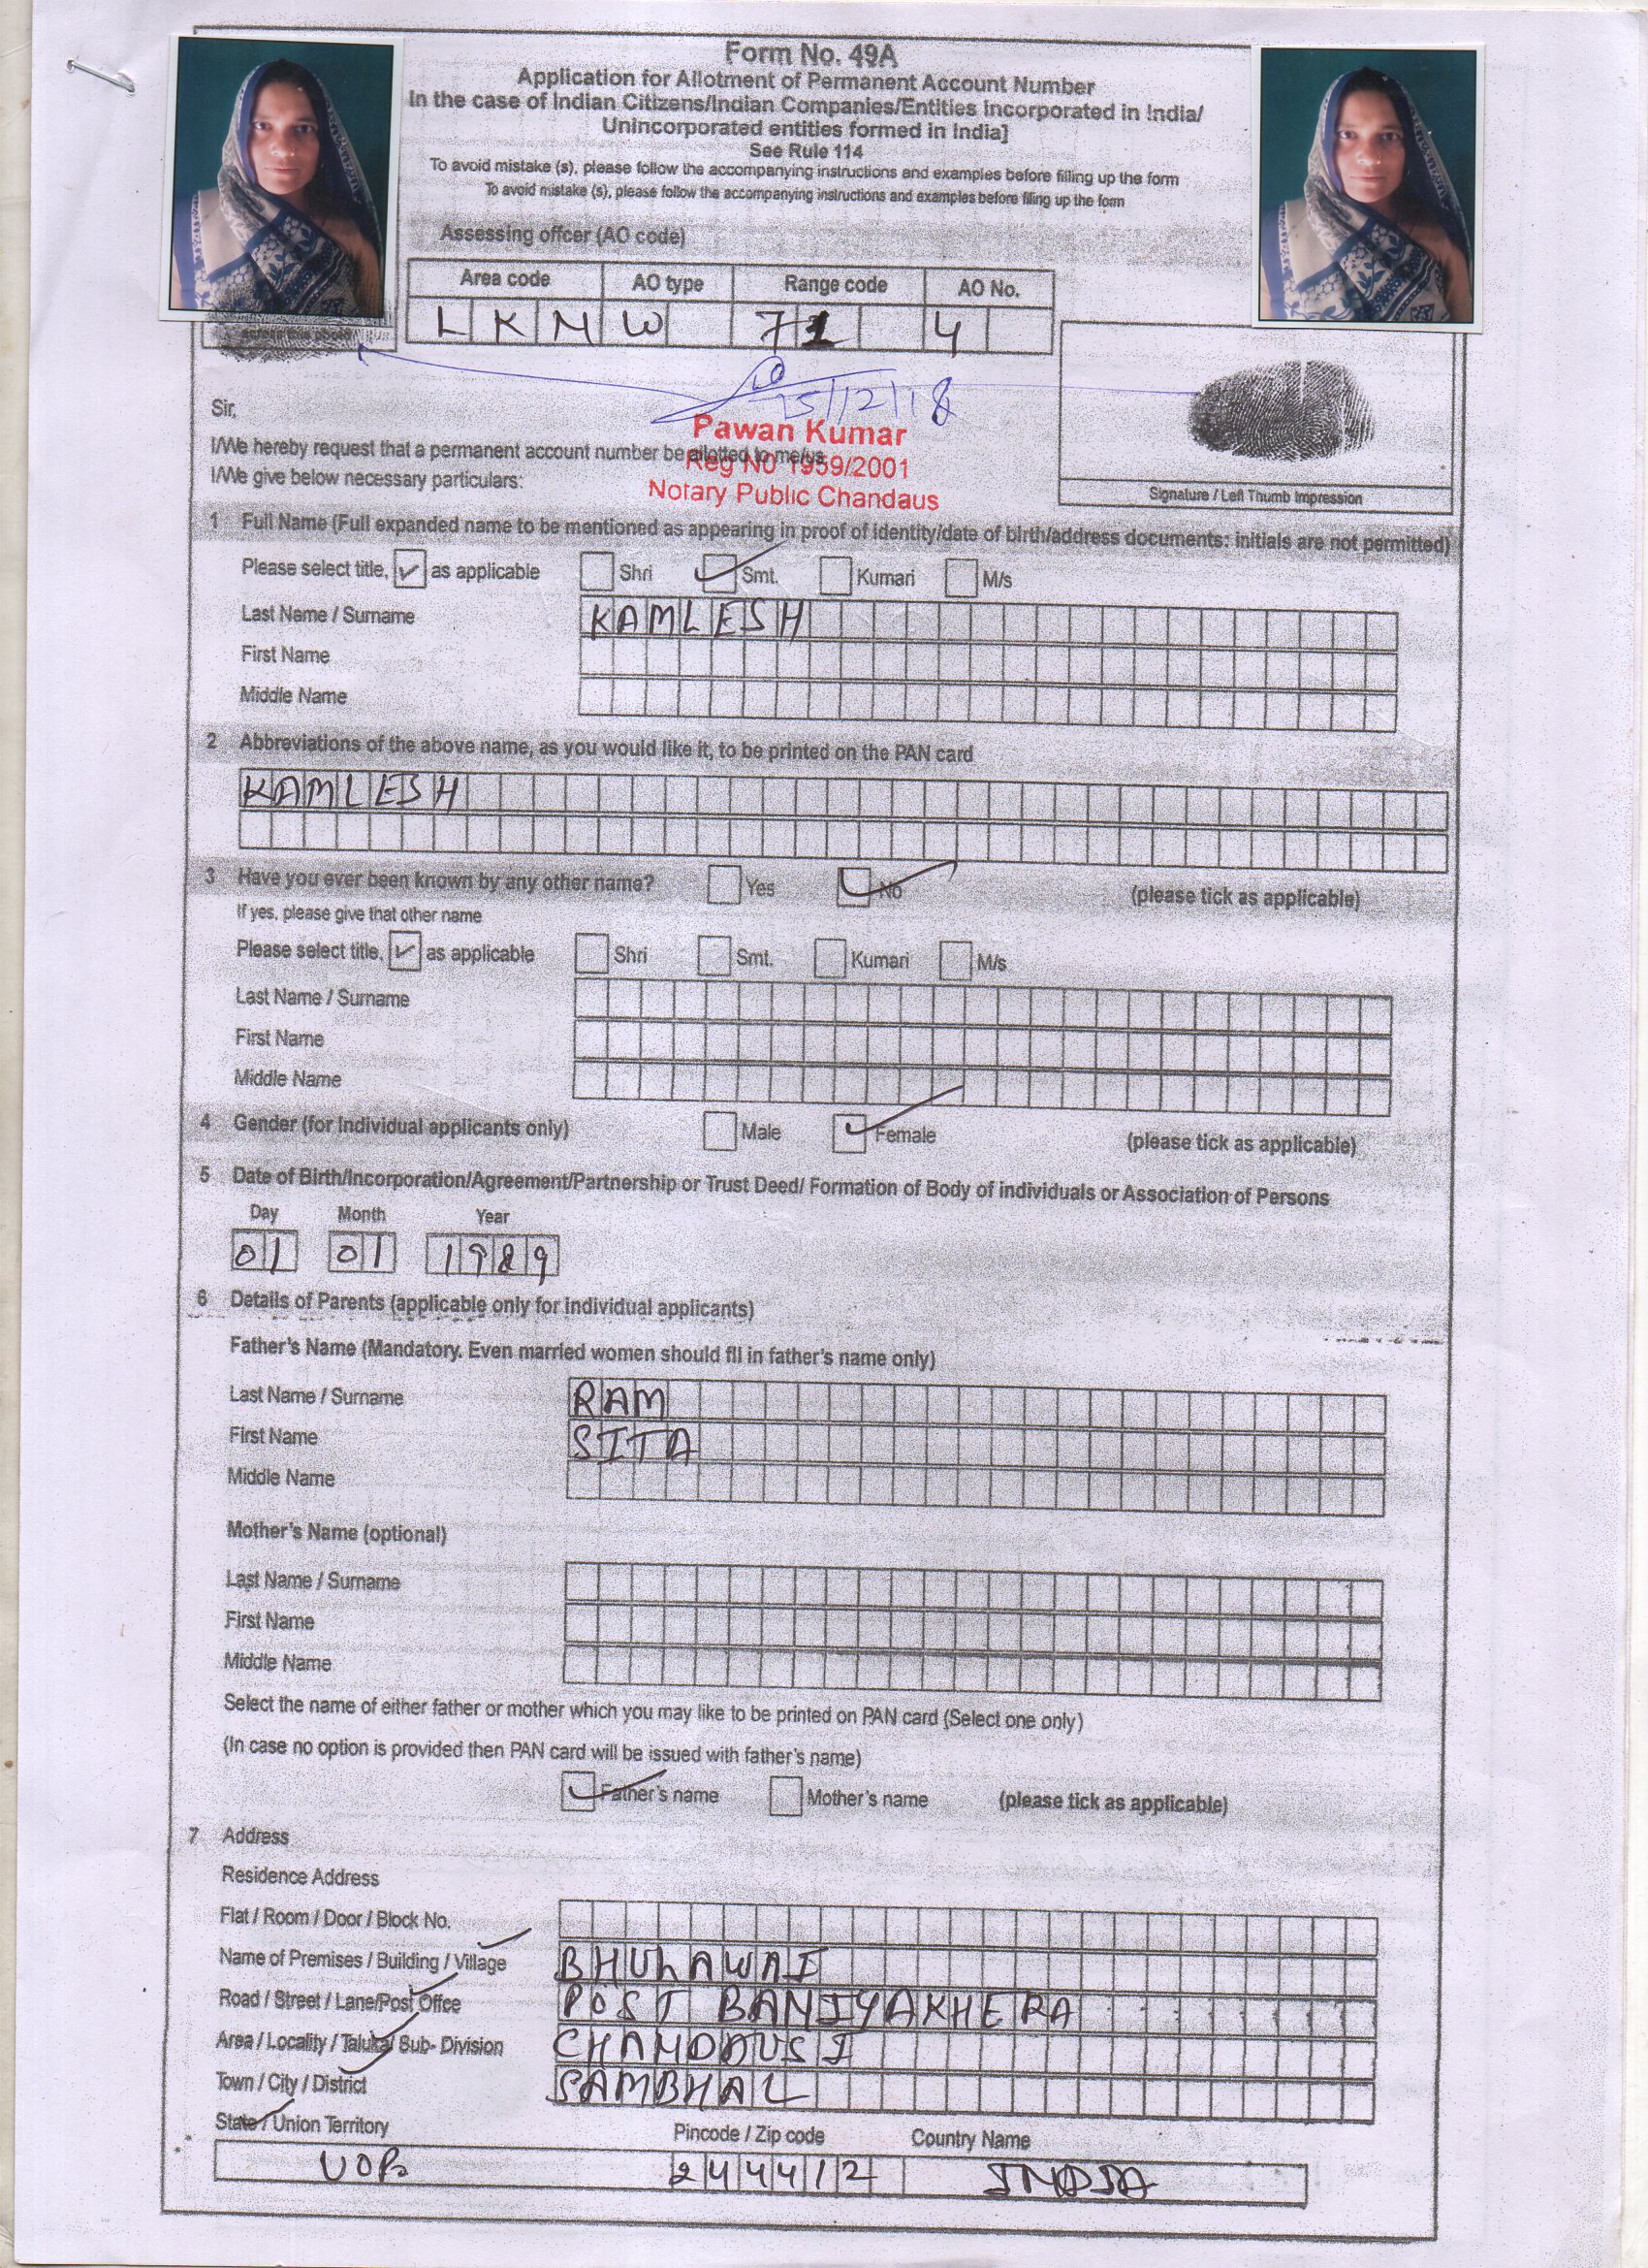 Form No. 49A
Application for Allotment of Permanent Account Number
In the case of Indian Citizens/Indian Companies/Entities Incorporated in India/
Unincorporated entities formed in India]
See Rule 114
To avoid mistake (s), please follow the accompanying instructions and examples before filling up the form
To avoid mistake (s), please follow the accompanying instructions and examples before filling up the form
Assessing offcer (AO code)
Area code AO type Range code AO No.
L K N W 71 4
15/12/18
Sir,
Pawan Kumar
I/We hereby request that a permanent account number be allotted to me/us
Reg No 1959/2001
I/We give below necessary particulars:
Notary Public Chandaus
Signature / Left Thumb Impression
1 Full Name (Full expanded name to be mentioned as appearing in proof of identity/date of birth/address documents: initials are not permitted)
Please select title, ✓ as applicable Shri Smt. Kumari M/s
Last Name / Surname KAMLESH
First Name
Middle Name
2 Abbreviations of the above name, as you would like it, to be printed on the PAN card
KAMLESH
3 Have you ever been known by any other name? Yes No (please tick as applicable)
If yes, please give that other name
Please select title, ✓ as applicable Shri Smt. Kumari M/s
Last Name / Surname
First Name
Middle Name
4 Gender (for Individual applicants only) Male Female (please tick as applicable)
5 Date of Birth/Incorporation/Agreement/Partnership or Trust Deed/ Formation of Body of individuals or Association of Persons
Day Month Year
01 01 1989
6 Details of Parents (applicable only for individual applicants)
Father's Name (Mandatory. Even married women should fll in father's name only)
Last Name / Surname RAM
First Name SITA
Middle Name
Mother's Name (optional)
Last Name / Surname
First Name
Middle Name
Select the name of either father or mother which you may like to be printed on PAN card (Select one only)
(In case no option is provided then PAN card will be issued with father's name)
Father's name Mother's name (please tick as applicable)
7 Address
Residence Address
Flat / Room / Door / Block No.
Name of Premises / Building / Village BHULAWAI
Road / Street / Lane/Post Offce POST BANIYAKHERA
Area / Locality / Taluka/ Sub- Division CHANDAUSI
Town / City / District SAMBHAL
State / Union Territory Pincode / Zip code Country Name
U.P. 244412 INDIA